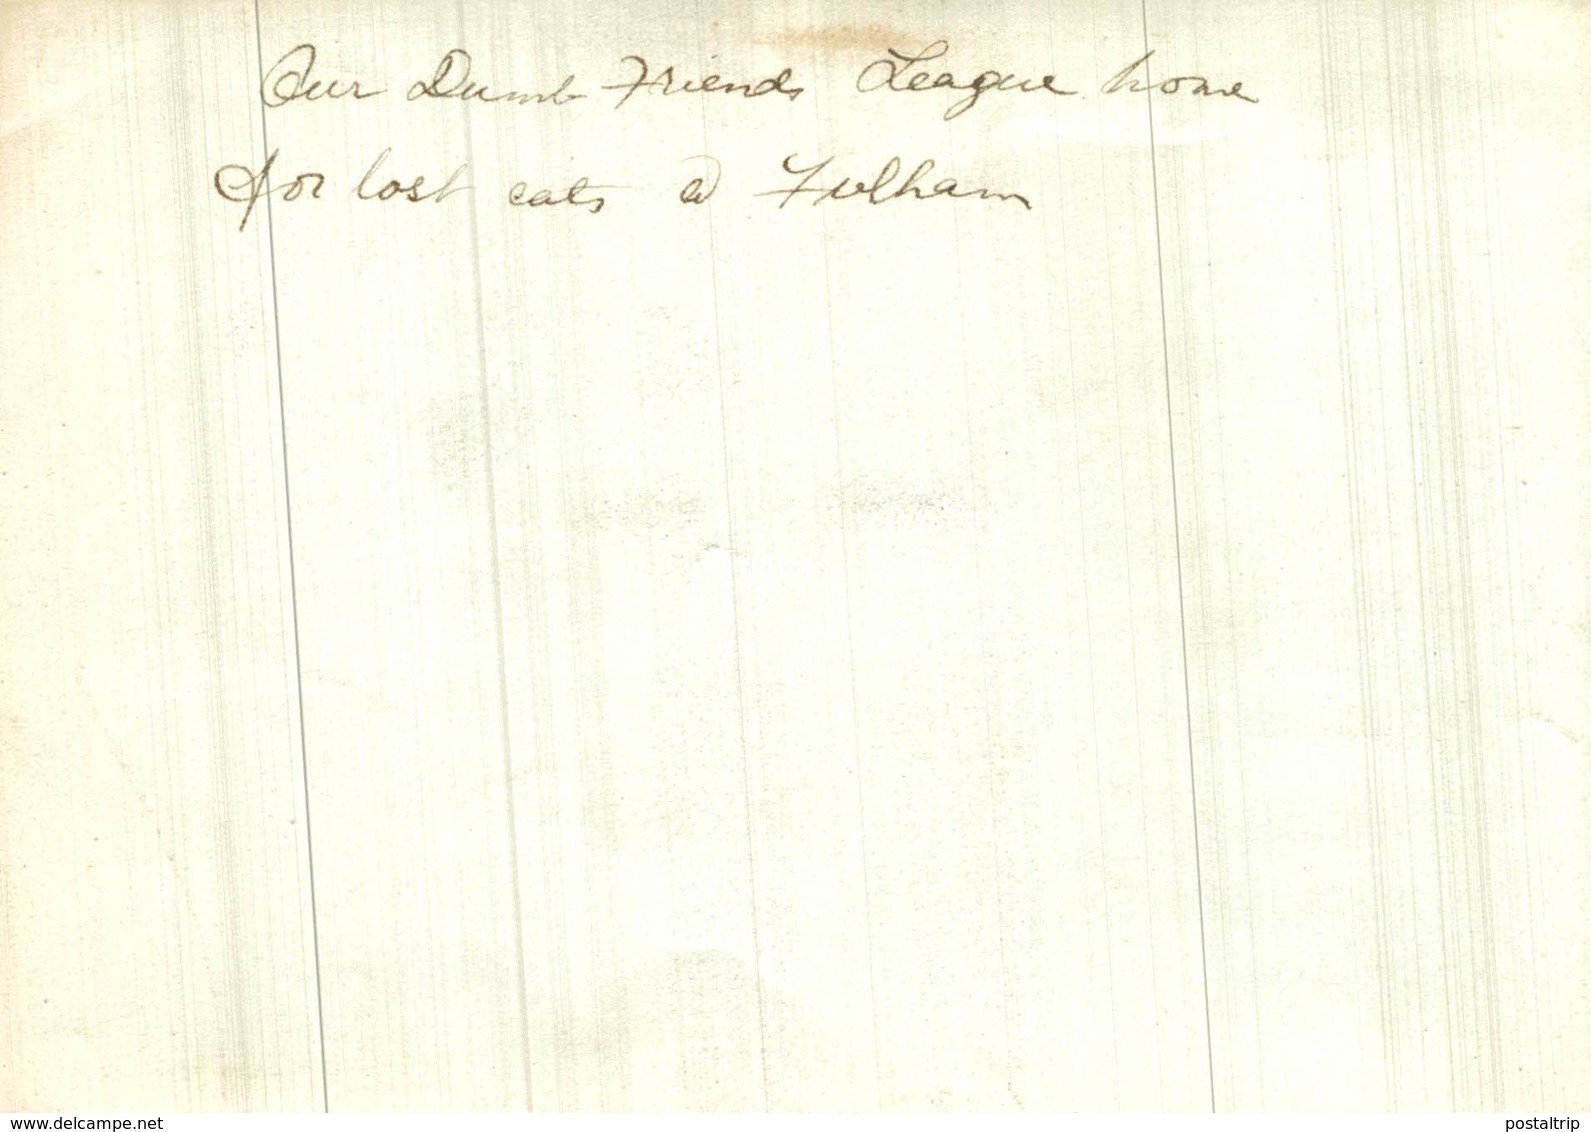 Our Dumb Friends League home
for lost cats @ Fulham
www.delcampe.net
postaltrip